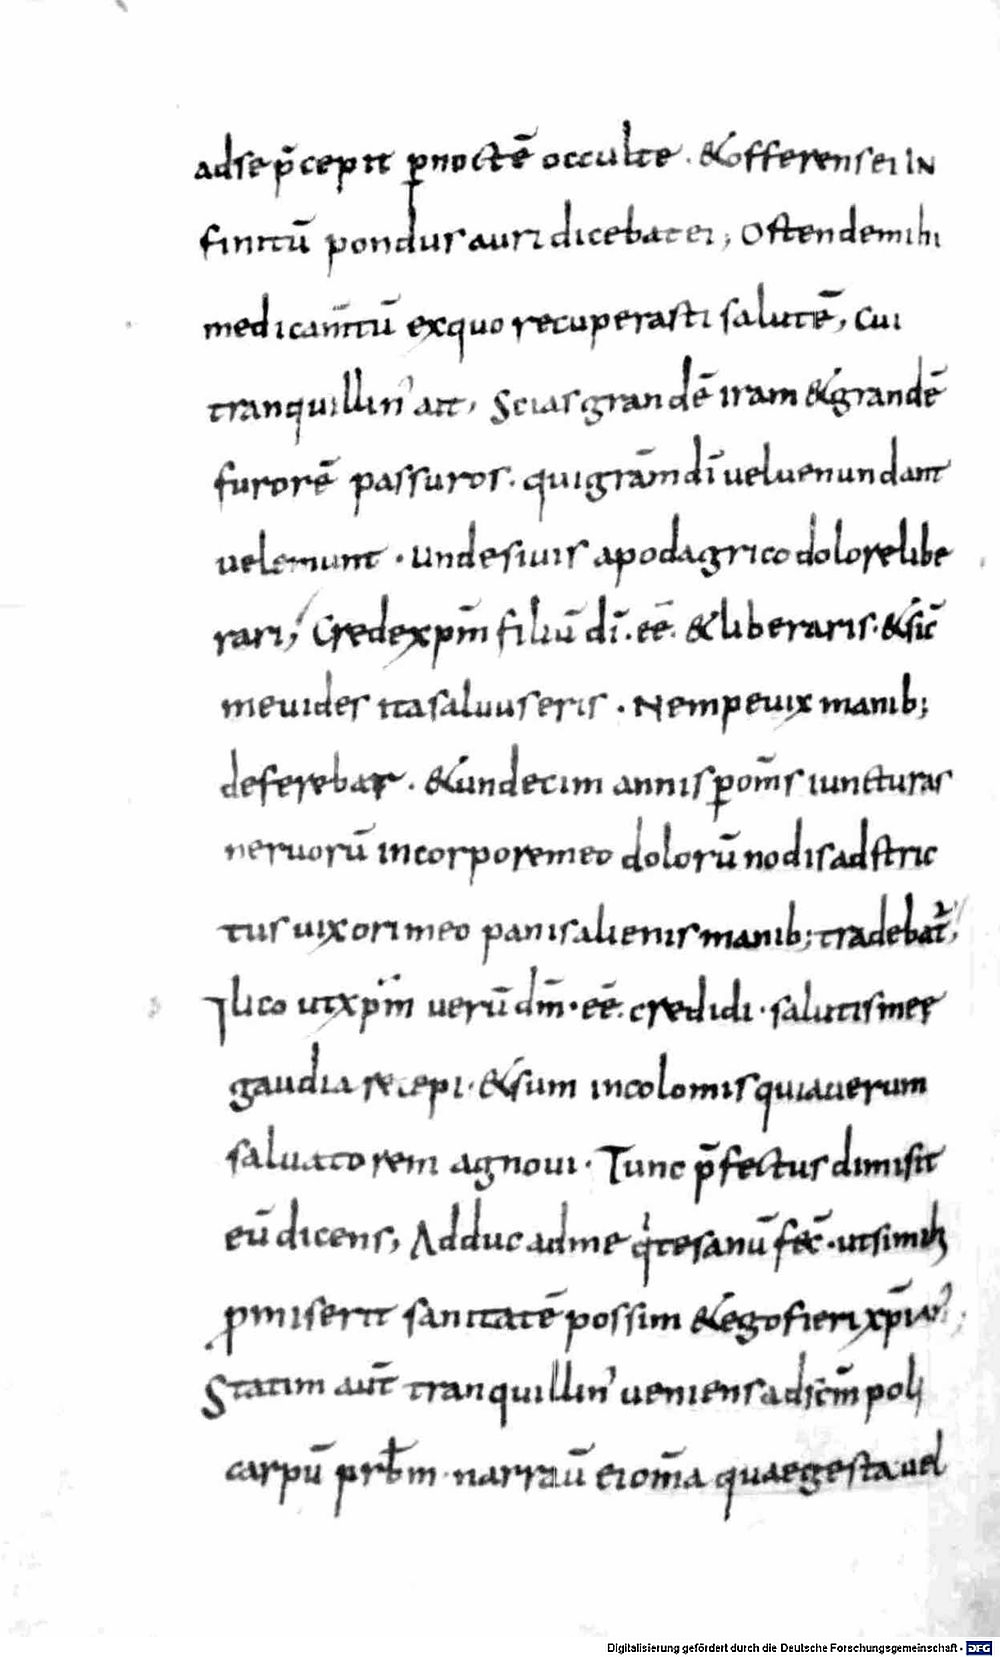 adse p̄cepit ꝑnoctē occulte . & offerens ei IN
finitū pondus auri dicebat ei ; Ostende mihi
medicam̄tū ex quo recuperasti salutē, Cui
tranquillin' ait, Scias grandē iram & grandē
furorē passuros . qui grām dī uel uenundant
uel emunt . unde si uis a podagrico dolore libe
rari, Crede xp̄m filiū dī . eē . & liberaris . & sīc
me uides ita saluus eris . Nempe uix manib;
deferebar . & undecim annis ꝑ om̄s iuncturas
neruorū in corpore meo dolorū nodis adstric
tus uix ori meo panis alienis manib; tradebat̄,
Ilico ut xp̄m uerū dm̄ . eē . credidi . salutis meę
gaudia recepi . & sum incolomis quia uerum
saluatorem agnoui . Tunc p̄fectus dimisit
eū dicens, Adduc ad me qͥ te sanū fec̄ . ut si mihi
ꝓmiserit sanitatē possim & ego fieri xp̄ian';
Statim aut̄ tranquillin' ueniens ad sc̄m poli
carpū prb̄m narrauit̄ ei om̄a quae gesta uel
Digitalisierung gefördert durch die Deutsche Forschungsgemeinschaft - DFG